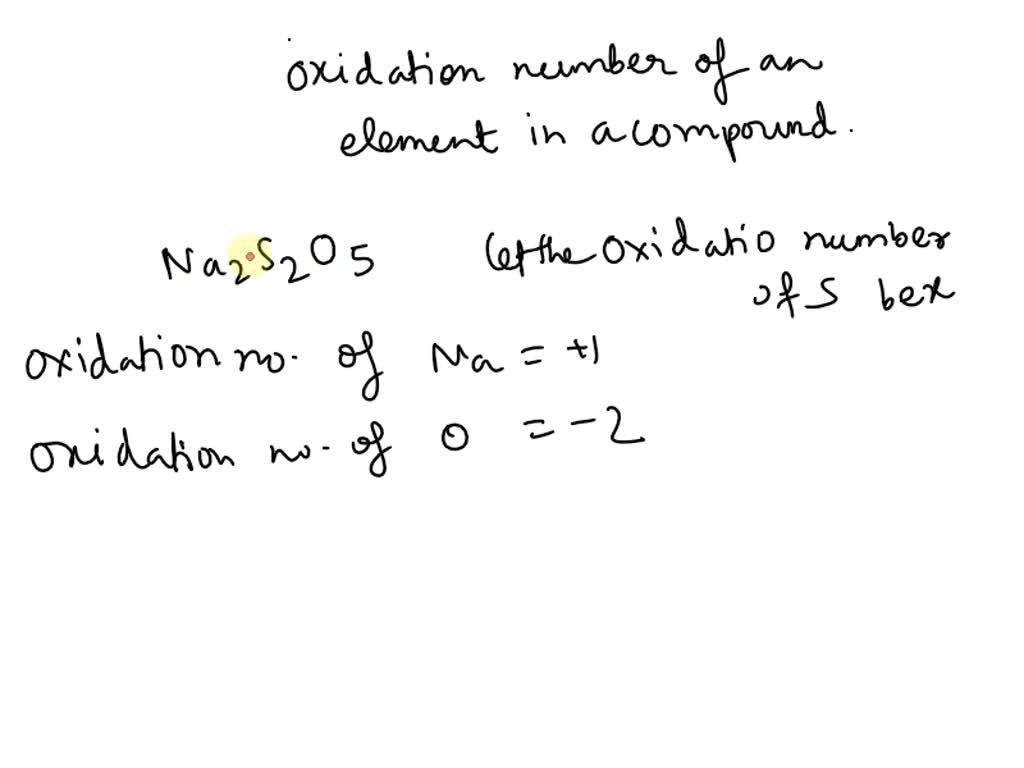 oxidation number of an
element in a compound.
Na2S2O5 let the oxidatio number
of S be x
oxidation no. of Na = +1
oxidation no. of O = -2